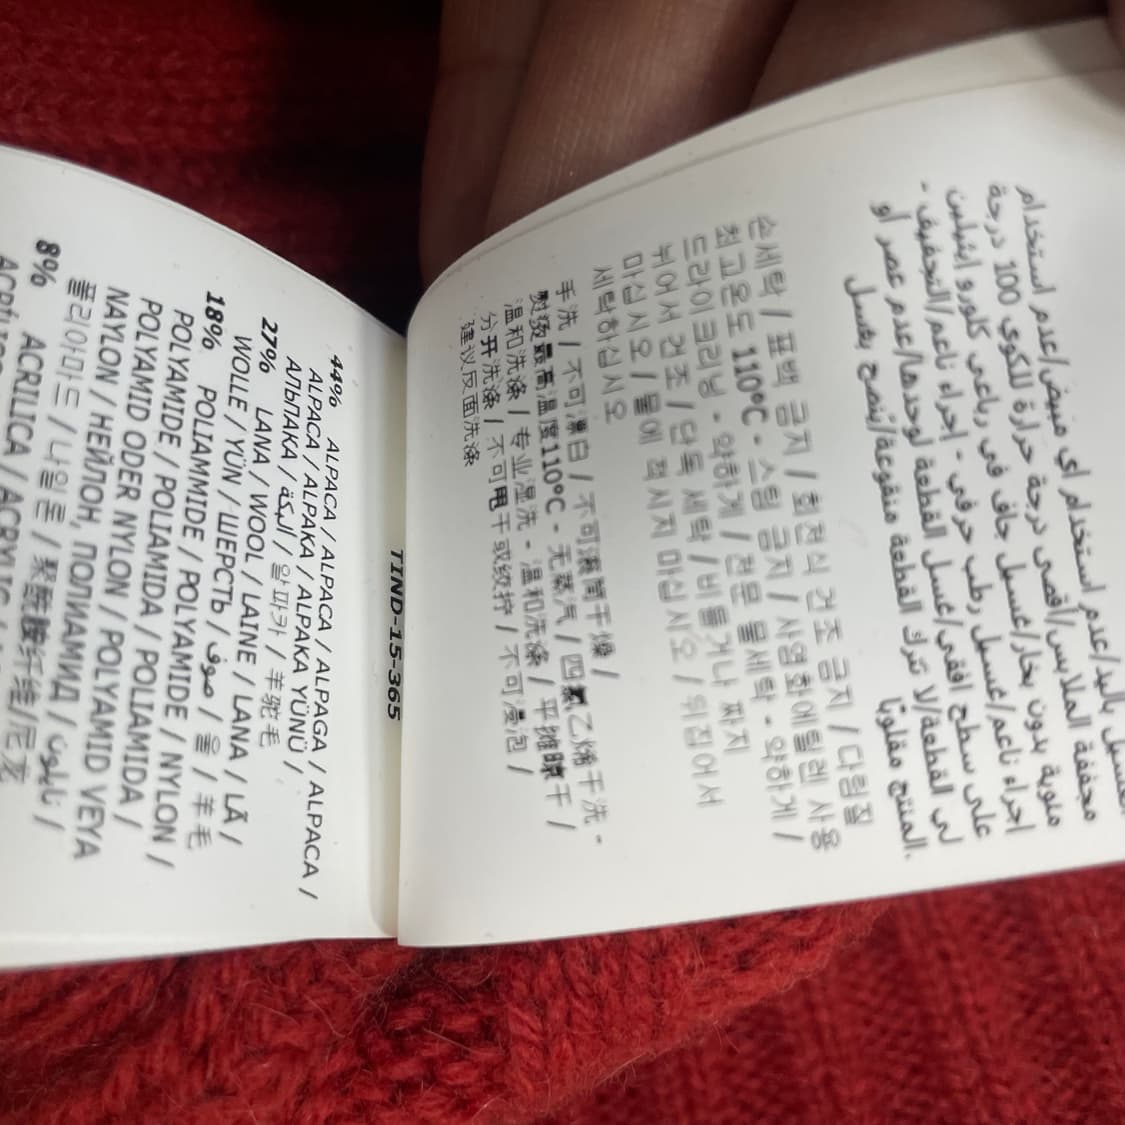 44% ALPACA / ALPACA / ALPAGA / ALPACA /
ALPACA / ALPAKA / ALPAKA YÜNÜ /
АЛЬПАКА / البكة / 알파카 / 羊驼毛
27% LANA / WOOL / LAINE / LANA / LÃ /
WOLLE / YÜN / ШЕРСТЬ / صوف / 울 / 羊毛
18% POLIAMMIDE / POLYAMIDE / NYLON /
POLYAMIDE / POLIAMIDA / POLIAMIDA /
POLYAMID ODER NYLON / POLYAMID VEYA
NAYLON / НЕЙЛОН, ПОЛИАМИД / نايلون /
폴리아마드 / 나일론 / 聚酰胺纤维/尼龙
8% ACRILICA / ACRYLIC
TIND-15-365
مجففة الملابس/أقصى درجة حرارة للكوي 100 درجة
مئوية بدون بخار/غسيل جاف في رباعي كلورو إيثيلين
اجراء ناعم/غسيل رطب حرفي - إجراء ناعم/التجفيف -
على سطح افقي/غسل القطعة لوحدها/عدم عصر أو
لي القطعة/لا تترك القطعة منقوعة/ينصح بغسل
المنتج مقلوبًا.
손세탁 / 표백 금지 / 회전식 건조 금지 / 다림질
최고온도 110°C - 스팀 금지 / 사염화에틸렌 사용
드라이크리닝 - 약하게 / 전문 물세탁 - 약하게 /
뉘어서 건조 / 단독 세탁 / 비틀거나 짜지
마십시오 / 물에 적시지 마십시오 / 뒤집어서
세탁하십시오
手洗 / 不可漂白 / 不可滚筒干燥 /
熨烫最高温度110°C - 无蒸汽 / 四氯乙烯干洗 -
温和洗涤 / 专业湿洗 - 温和洗涤 / 平摊晾干 /
分开洗涤 / 不可甩干或绞拧 / 不可浸泡 /
建议反面洗涤